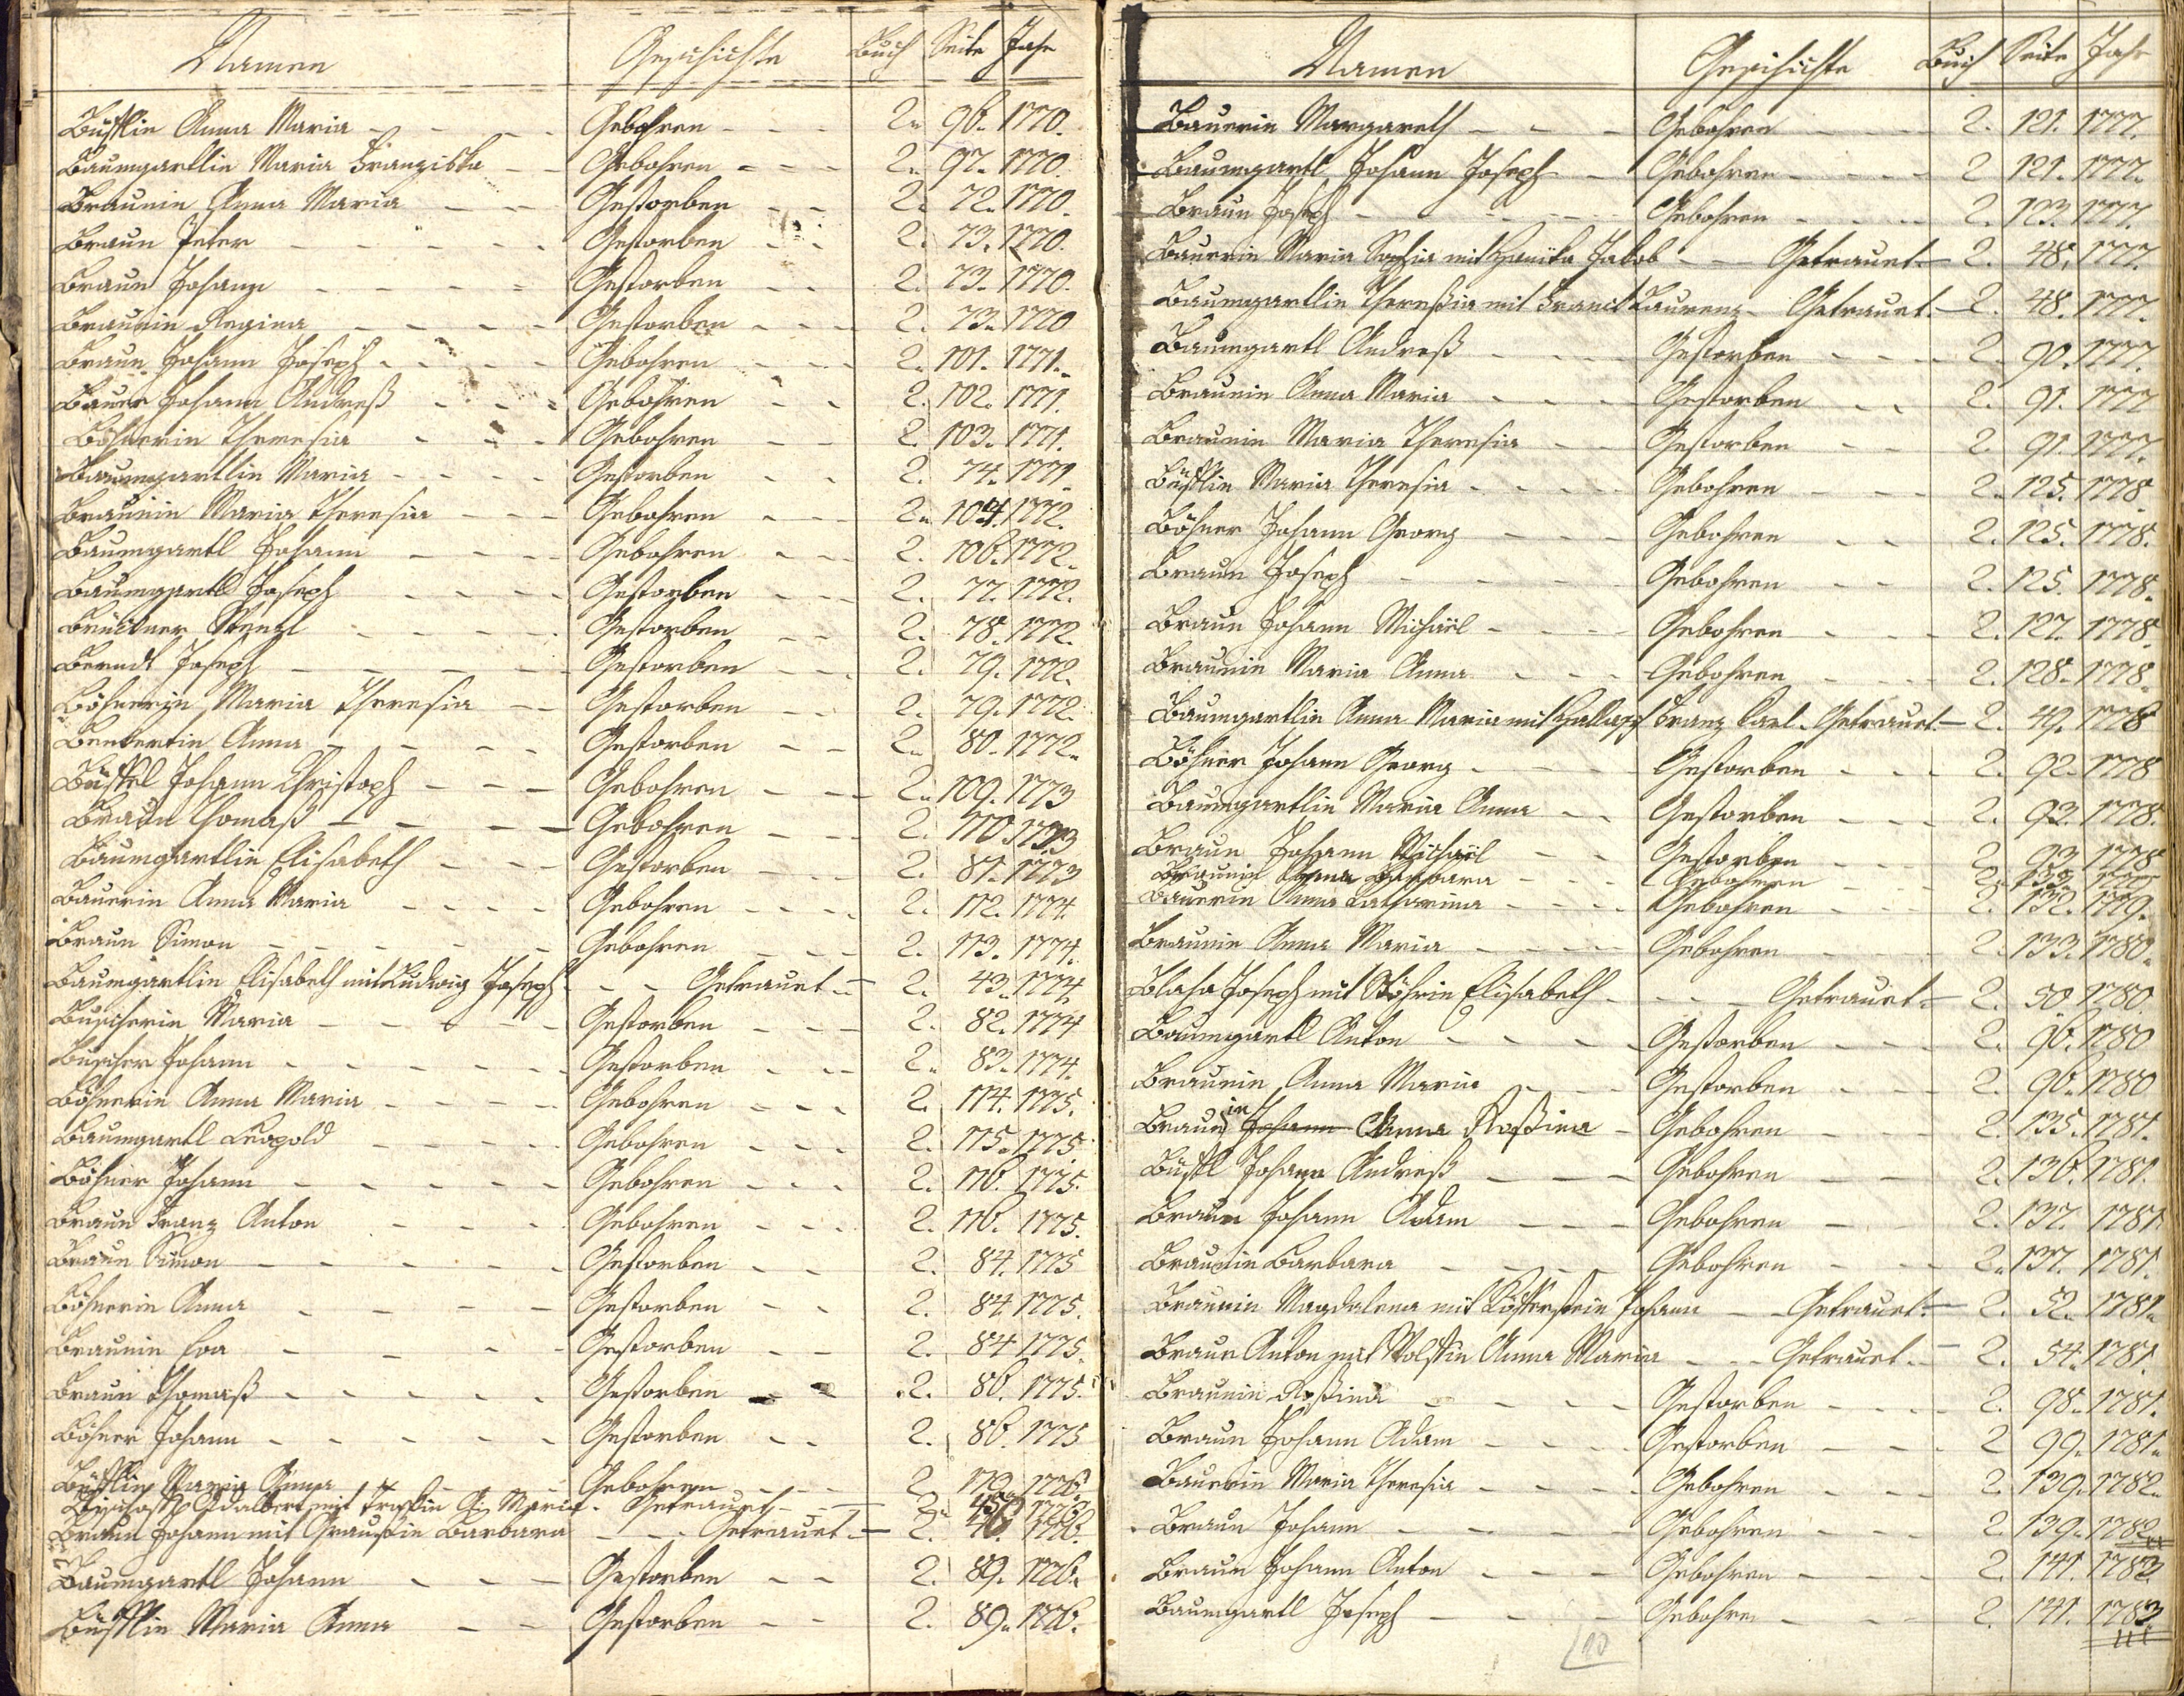 Namen Geschichte Buch Seite Jahr
Anna Maria Gebohren 2. 96. 1770.
Baumgartlin Maria Franziska Gebohren 2. 97. 1770.
Braunin Anna Maria Gestorben 2. 72. 1770.
Braun Peter Gestorben 2. 73. 1770.
Braun Johann Gestorben 2. 73. 1770.
Braunin Regina Gestorben 2. 73. 1770
Braun Johann Joseph Gebohren 2. 101. 1771.
Bauer Johann Andreß Gebohren 2. 102. 1771.
Böhnerin Theresia Gebohren 2. 103. 1771.
Baumgartlin Maria Gestorben 2. 74. 1771.
Braunin Maria Theresia Gebohren 2. 104. 1772.
Baumgartl Johann Gebohren 2. 106. 1772.
Baumgartl Joseph Gestorben 2. 77. 1772.
Brückner Wenzl Gestorben 2. 78. 1772.
Berndt Joseph Gestorben 2. 79. 1772.
Böhnerin Maria Theresia Gestorben 2. 79. 1772.
Benkertin Anna Gestorben 2. 80. 1772.
Johann Christoph Gebohren 2. 109. 1773
Braun Thomaß Gebohren 2. 110. 1773
Baumgartlin Elisabeth Gestorben 2. 81. 1773
Bauerin Anna Maria Gebohren 2. 112. 1774.
Braun Simon Gebohren 2. 113. 1774.
Baumgartlin Elisabeth mit Ludwig Joseph Getrauet 2. 43. 1774.
Büscherin Maria Gestorben 2. 82. 1774
Büscher Johann Gestorben 2. 83. 1774.
Böhnerin Anna Maria Gebohren 2. 114. 1775.
Baumgartl Leopold Gebohren 2. 115. 1775.
Böhner Johann Gebohren 2. 116. 1775.
Braun Franz Anton Gebohren 2. 116. 1775.
Braun Simon Gestorben 2. 84. 1775
Böhnerin Anna Gestorben 2. 84. 1775.
Braunin Eva Gestorben 2. 84. 1775.
Braun Thomaß Gestorben 2. 86. 1775.
Böhner Johann Gestorben 2. 86. 1775
Maria Anna Gebohren 2. 1776.
Adalbert mit Maria Getrauet 2. 1776
Braun Johann mit Barbara Getrauet 2. 46. 1776.
Baumgartl Johann Gestorben 2. 89. 1776.
Maria Anna Gestorben 2. 89. 1776.
Namen Geschichte Buch Seite Jahr
Bauerin Margareth Gebohren 2. 121. 1777.
Baumgartl Johann Joseph Gebohren 2 121. 1777.
Braun Joseph Gebohren 2. 123. 1777.
Bauerin Maria Sophia mit Jakob Getrauet 2. 48. 1777.
Baumgartlin Thereßia mit Laurenz Getrauet 2. 48. 1777.
Baumgartl Andreß Gestorben 2. 90. 1777.
Braunin Anna Maria Gestorben 2. 91. 1777
Braunin Maria Theresia Gestorben 2. 91. 1777.
Maria Theresia Gebohren 2. 125. 1778.
Böhner Johann Georg Gebohren 2. 125. 1778.
Braun Joseph Gebohren 2. 125. 1778.
Braun Johann Michaël Gebohren 2. 127. 1778.
Braunin Maria Anna Gebohren 2. 128. 1778.
Baumgartlin Anna Maria mit Franz Karl Getrauet 2. 49. 1778
Böhner Johann Georg Gestorben 2. 92. 1778
Baumgartlin Maria Anna Gestorben 2. 93. 1778.
Braun Johann Michaël Gestorben 2. 93. 1778
Braunin Anna Barbara Gebohren 2.
Bauerin Anna Catharina Gebohren 2. 132. 1779.
Braunin Anna Maria Gebohren 2. 133. 1780.
Blaha Joseph mit Elisabeth Getrauet 2. 50. 1780.
Baumgartl Anton Gestorben 2. 96. 1780
Braunin Anna Maria Gestorben 2. 96. 1780
Braunin Johann Anna Roßina Gebohren 2. 135. 1781.
Johann Andreß Gebohren 2. 136. 1781.
Braun Johann Adam Gebohren 2. 137. 1781.
Braunin Barbara Gebohren 2. 137. 1781.
Braunin Magdalena mit Johann Getrauet 2. 52. 1781.
Braun Anton mit Anna Maria Getrauet 2. 54. 1781.
Braunin Roßina Gestorben 2. 98. 1781.
Braun Johann Adam Gestorben 2. 99. 1781.
Bauerin Maria Theresia Gebohren 2. 139. 1782.
Braun Johann Gebohren 2. 139. 1782.
Braun Johann Anton Gebohren 2. 141. 1783.
Baumgartl Joseph Gebohren 2. 141. 1783
10